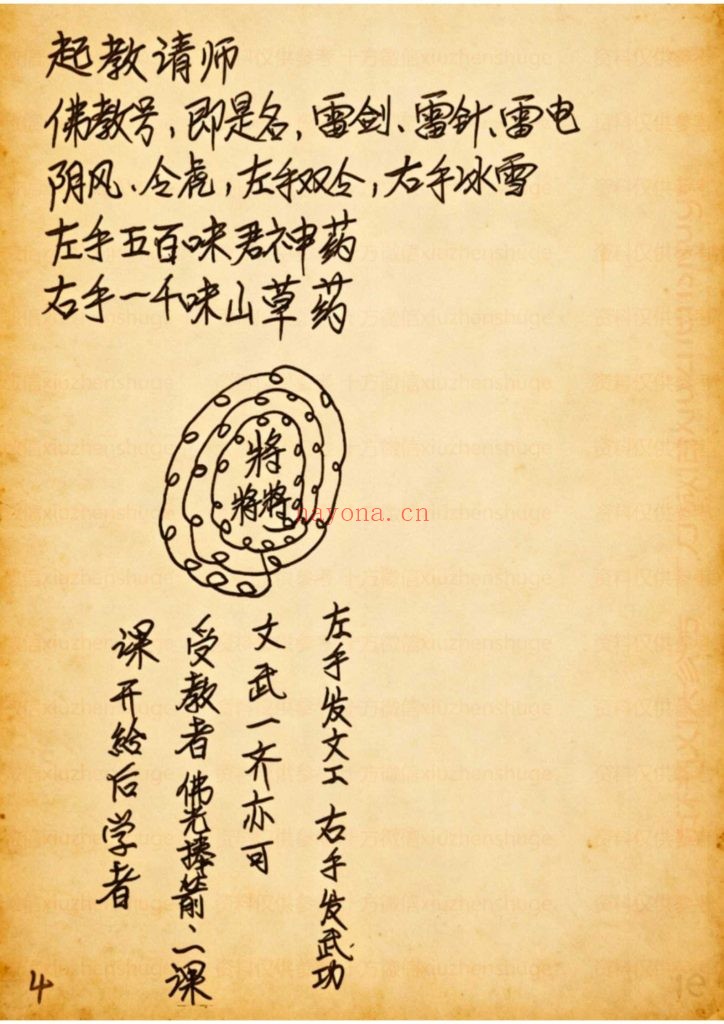 起教请师
佛教号，即是名，雷剑、雷针、雷电
阴风、令虎，左手双令，右手冰雪
左手五百味君神药
右手一千味山草药
將
將將
nayona.cn
左手发文工 右手发武功
文武一齐亦可
受教者 佛光捧箭、二课
课开給后学者
4